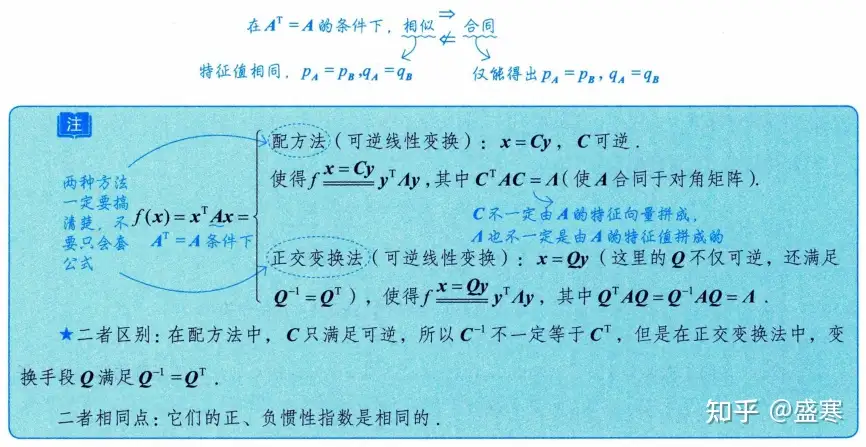 在 Aᵀ = A 的条件下，相似 ⇒ 合同
⇍
特征值相同．p_A = p_B, q_A = q_B
仅能得出 p_A = p_B, q_A = q_B
注
两种方法
一定要搞
清楚，不
要只会套
公式
f(x) = xᵀAx =
Aᵀ = A 条件下
配方法（可逆线性变换）：x = Cy，C 可逆．
使得 f ==(x = Cy)== yᵀΛy，其中 CᵀAC = Λ（使 A 合同于对角矩阵）．
C 不一定由 A 的特征向量拼成，
Λ 也不一定是由 A 的特征值拼成的
正交变换法（可逆线性变换）：x = Qy（这里的 Q 不仅可逆，还满足
Q⁻¹ = Qᵀ），使得 f ==(x = Qy)== yᵀΛy，其中 QᵀAQ = Q⁻¹AQ = Λ．
★二者区别：在配方法中，C 只满足可逆，所以 C⁻¹ 不一定等于 Cᵀ，但是在正交变换法中，变
换手段 Q 满足 Q⁻¹ = Qᵀ．
二者相同点：它们的正、负惯性指数是相同的．
知乎 @盛寒